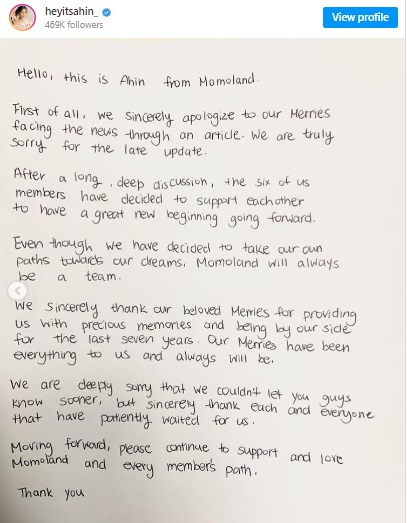 heyitsahin_
469K followers
View profile
Hello, this is Ahin from Momoland.
First of all, we sincerely apologize to our Merries
facing the news through an article. We are truly
sorry for the late update.
After a long, deep discussion, the six of us
members have decided to support eachother
to have a great new beginning going forward.
Even though we have decided to take our own
paths towards our dreams, Momoland will always
be a team.
We sincerely thank our beloved Merries for providing
us with precious memories and being by our side
for the last seven years. Our Merries have been
everything to us and always will be.
We are deeply sorry that we couldn't let you guys
know sooner, but sincerely thank each and everyone
that have patiently waited for us.
Moving forward, please continue to support and love
Momoland and every member's path.
Thank you